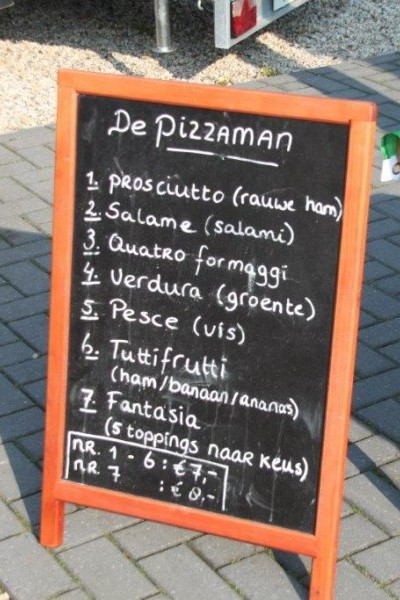 De PIZZAMAN
1. PROSCIUTTO (rauwe ham)
2. Salame (salami)
3. Quatro formaggi
4. Verdura (groente)
5. Pesce (vis)
6. Tuttifrutti
(ham/banaan/ananas)
7. Fantasia
(5 toppings naar keus)
NR. 1 - 6 : € 7,-
NR. 7 : € 8,-